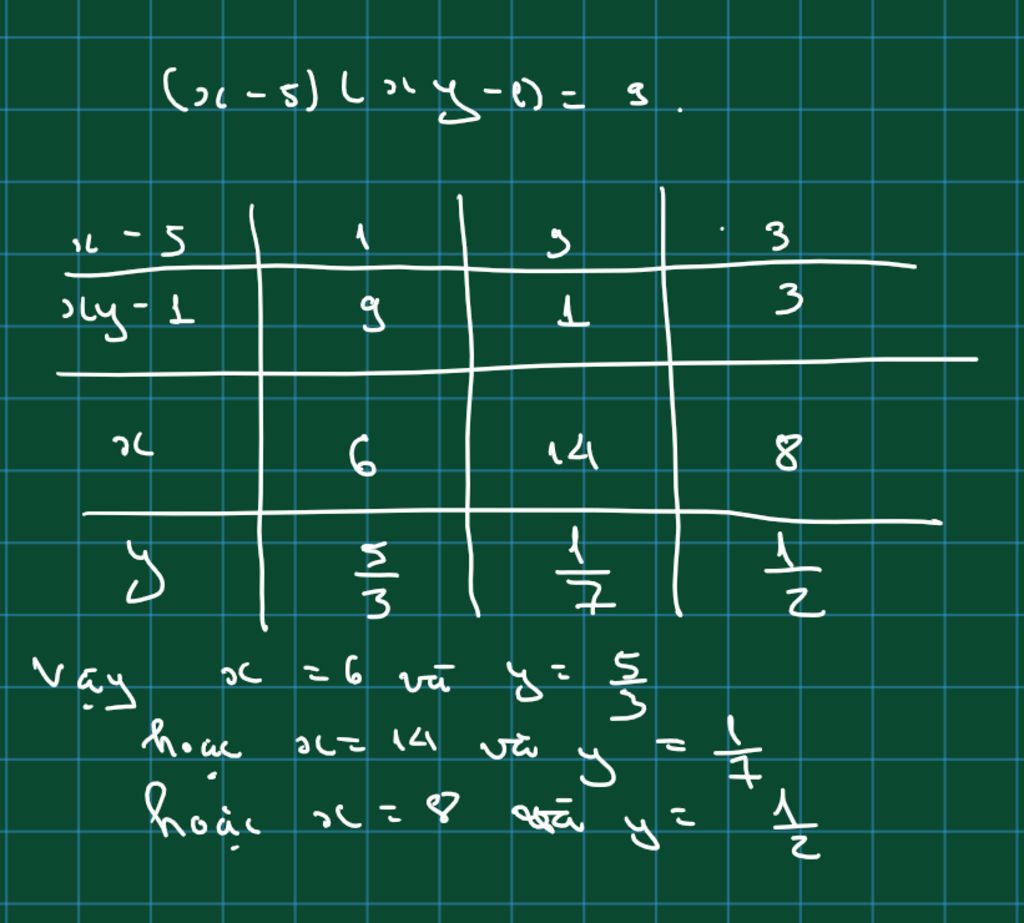 (x - 5) (xy - 1) = 9.
x - 5 | 1 | 9 | 3
xy - 1 | 9 | 1 | 3
x | 6 | 14 | 8
y | 5/3 | 1/7 | 1/2
Vậy x = 6 và y = 5/3
hoặc x = 14 và y = 1/7
hoặc x = 8 và y = 1/2